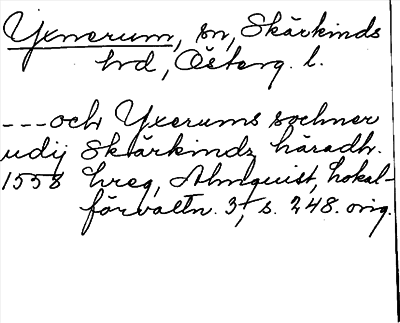 Yxnerum, sn, Skärkinds
hd, Österg. l.
---och Yxerums sochner
udij Skärkindz häradh.
1558 hreg, Almquist, Lokal-
förvaltn. 3, s. 248. orig.